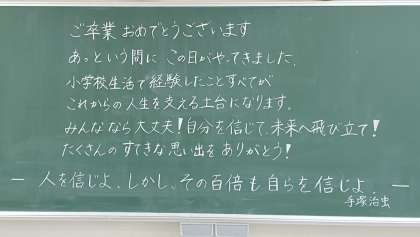 ご卒業おめでとうございます
あっという間に この日がやってきました。
小学校生活で経験したことすべてが
これからの人生を支える土台になります。
みんななら大丈夫!自分を信じて、未来へ飛び立て!
たくさんの すてきな思い出を ありがとう!
― 人を信じよ、しかし、その百倍も自らを信じよ。―
手塚治虫